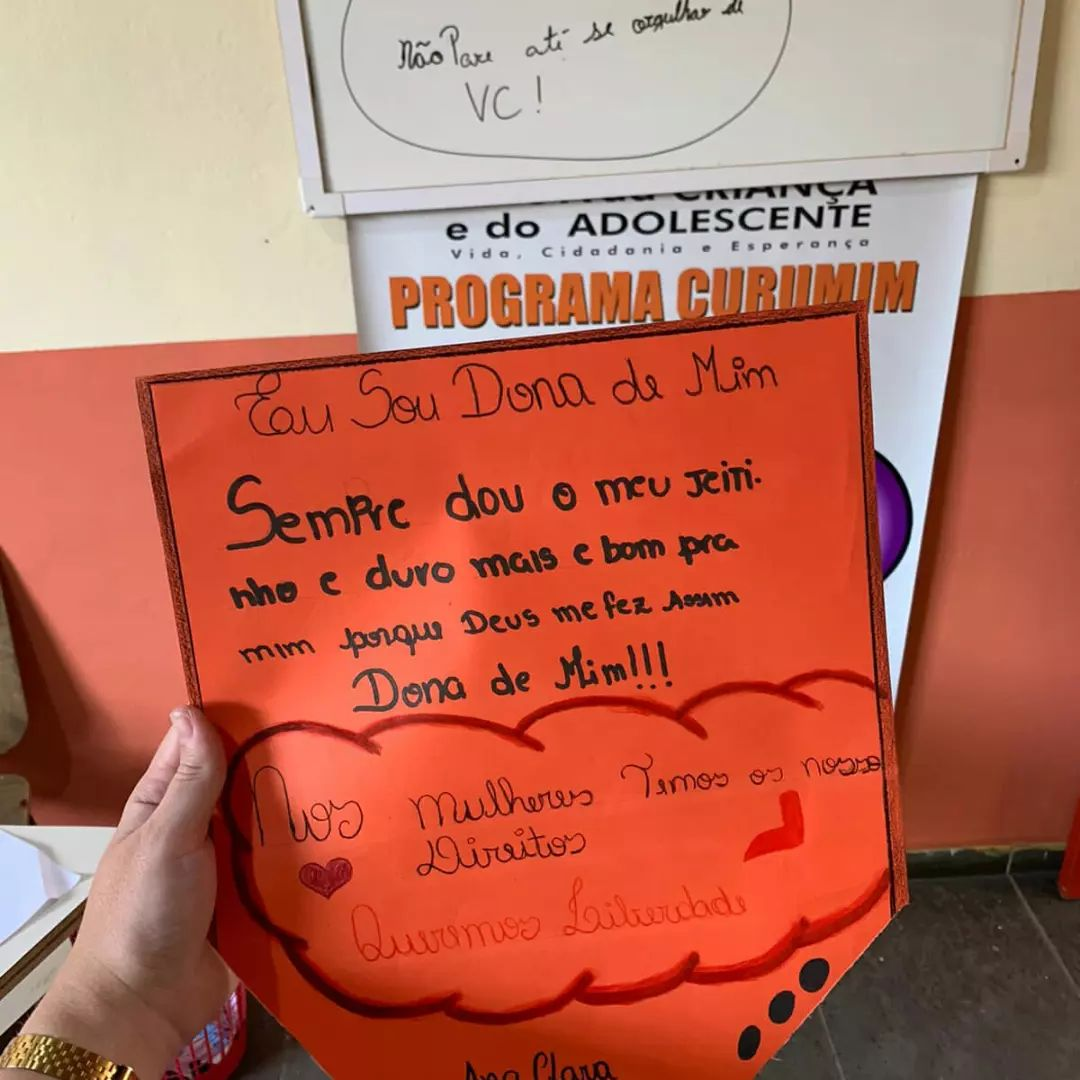 Não Pare até se orgulhar de
VC!
CRIANÇA
e do ADOLESCENTE
Vida, Cidadania e Esperança
PROGRAMA CURUMIM
Eu Sou Dona de Mim
Sempre dou o meu jeiti-
nho e duro mais e bom pra
mim porque Deus me fez Assim
Dona de Mim!!!
Nos Mulheres Temos os nosso
Direitos
Queremos Liberdade
Ana Clara